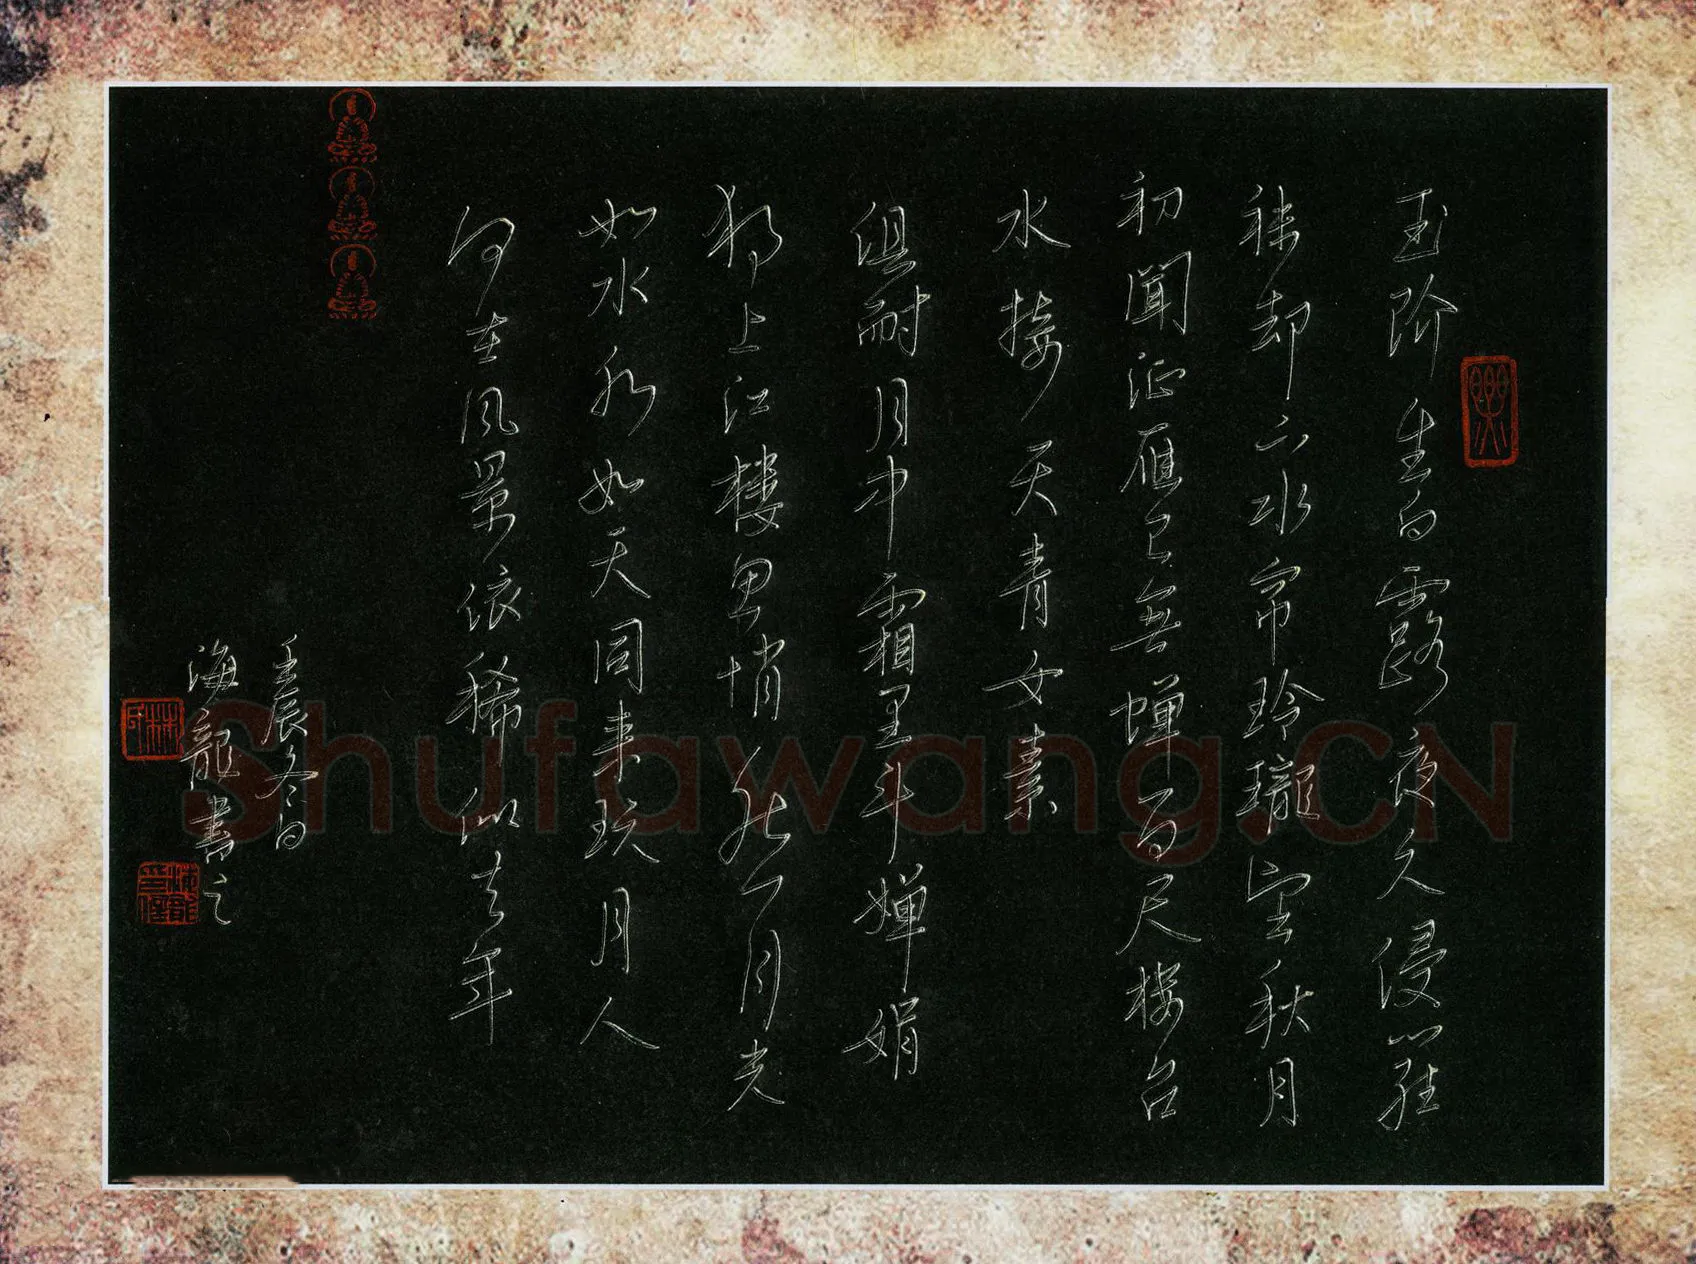 玉阶生白露夜久侵羅
袜却下水帘玲瓏望秋月
初聞征雁已無蝉百尺楼台
水接天青女素
俱耐月中霜里斗婵娟
独上江楼思悄然月光
如水水如天同来玩月人
何在风景依稀似去年
壬辰冬日
海龍書之
Shufawang.CN